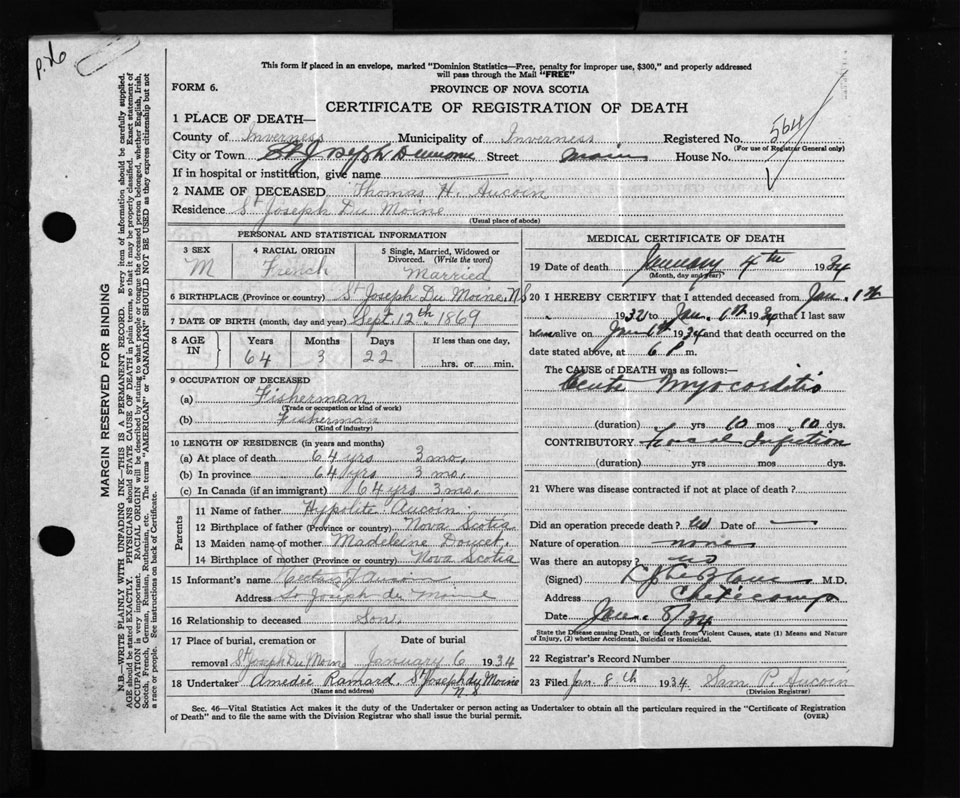 P. 26
This form if placed in an envelope, marked "Dominion Statistics—Free, penalty for improper use, $300," and properly addressed
will pass through the Mail "FREE"
FORM 6.
PROVINCE OF NOVA SCOTIA
CERTIFICATE OF REGISTRATION OF DEATH
564
1 PLACE OF DEATH—
County of Inverness Municipality of Inverness Registered No.
(For use of Registrar General only)
City or Town St Joseph Dumoine Street Main House No.
If in hospital or institution, give name
2 NAME OF DECEASED Thomas H. Aucoin
Residence St Joseph Du Moine
(Usual place of abode)
MARGIN RESERVED FOR BINDING
N.B.—WRITE PLAINLY WITH UNFADING INK—THIS IS A PERMANENT RECORD. Every item of information should be carefully supplied.
AGE should be stated EXACTLY. PHYSICIANS should STATE CAUSE OF DEATH in plain terms, so that it may be properly classified. Exact statement of
OCCUPATION is very important. RACIAL ORIGIN will be described by stating to what people or tongue the deceased person belonged, whether English, Irish,
Scotch, French, German, Russian, Ruthenian, etc. The terms "AMERICAN" or "CANADIAN" SHOULD NOT BE USED as they express citizenship but not
a race or people. See instructions on back of Certificate.
PERSONAL AND STATISTICAL INFORMATION
3 SEX
M
4 RACIAL ORIGIN
French
5 Single, Married, Widowed or
Divorced. (Write the word)
Married
6 BIRTHPLACE (Province or country) St Joseph Du Moine, N S
7 DATE OF BIRTH (month, day and year) Sept. 12th 1869
8 AGE IN
Years Months Days If less than one day,
64 3 22 hrs. or min.
9 OCCUPATION OF DECEASED
(a) Fisherman
(Trade or occupation or kind of work)
(b) Fisherman
(Kind of industry)
10 LENGTH OF RESIDENCE (in years and months)
(a) At place of death 64 yrs 3 mo.
(b) In province 64 yrs 3 mo.
(c) In Canada (if an immigrant) 64 yrs 3 mo.
Parents
11 Name of father Hypolite Aucoin
12 Birthplace of father (Province or country) Nova Scotia
13 Maiden name of mother Madeleine Doucet.
14 Birthplace of mother (Province or country) Nova Scotia
15 Informant's name Aucoin
Address St Joseph du Moine
16 Relationship to deceased Son.
17 Place of burial, cremation or Date of burial
removal St Joseph Du Moine January 6 1934
18 Undertaker Amedée Ramard. St Joseph du Moine
(Name and address) N S
MEDICAL CERTIFICATE OF DEATH
19 Date of death January 4th 1934
(Month, day and year)
20 I HEREBY CERTIFY that I attended deceased from Jan. 1th
1932 to Jan. 1th 1934 that I last saw
him alive on Jan 1th 1934 and that death occurred on the
date stated above, at 6 P. m.
The CAUSE of DEATH was as follows:—
Acute Myocarditis
(duration) yrs 10 mos 10 dys.
CONTRIBUTORY Focal Infection
(duration) yrs mos dys.
21 Where was disease contracted if not at place of death?
Did an operation precede death? no Date of —
Nature of operation none
Was there an autopsy? no
(Signed) M.D.
Address Cheticamp
Date Jan. 8/34
State the Disease causing Death, or in death from Violent Causes, state (1) Means and Nature
of Injury, (2) whether Accidental, Suicidal or Homicidal.
22 Registrar's Record Number
23 Filed Jan. 8th 1934. Sam P. Aucoin
(Division Registrar)
Sec. 46—Vital Statistics Act makes it the duty of the Undertaker or person acting as Undertaker to obtain all the particulars required in the "Certificate of Registration
of Death" and to file the same with the Division Registrar who shall issue the burial permit.
(OVER)